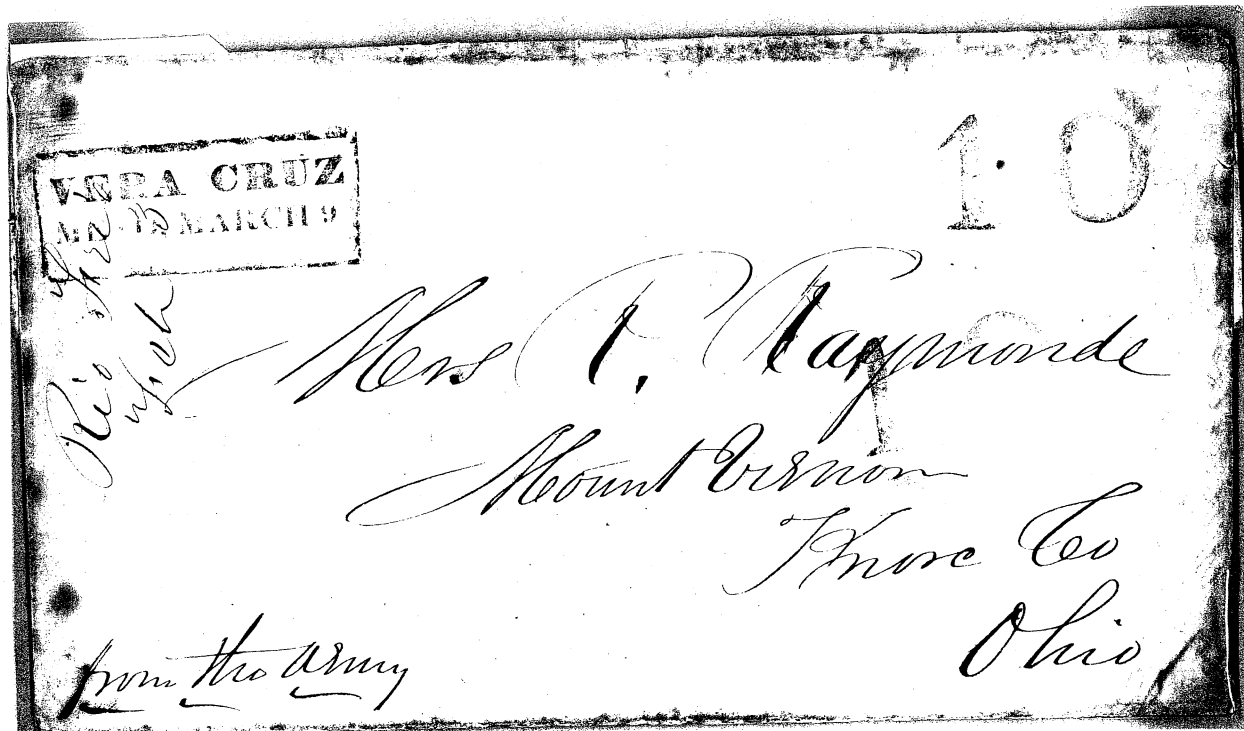 VERA CRUZ
MARCH 9
10
Rio
Mrs P. Raymonde
Mount Vernon
Knox Co
Ohio
from the army